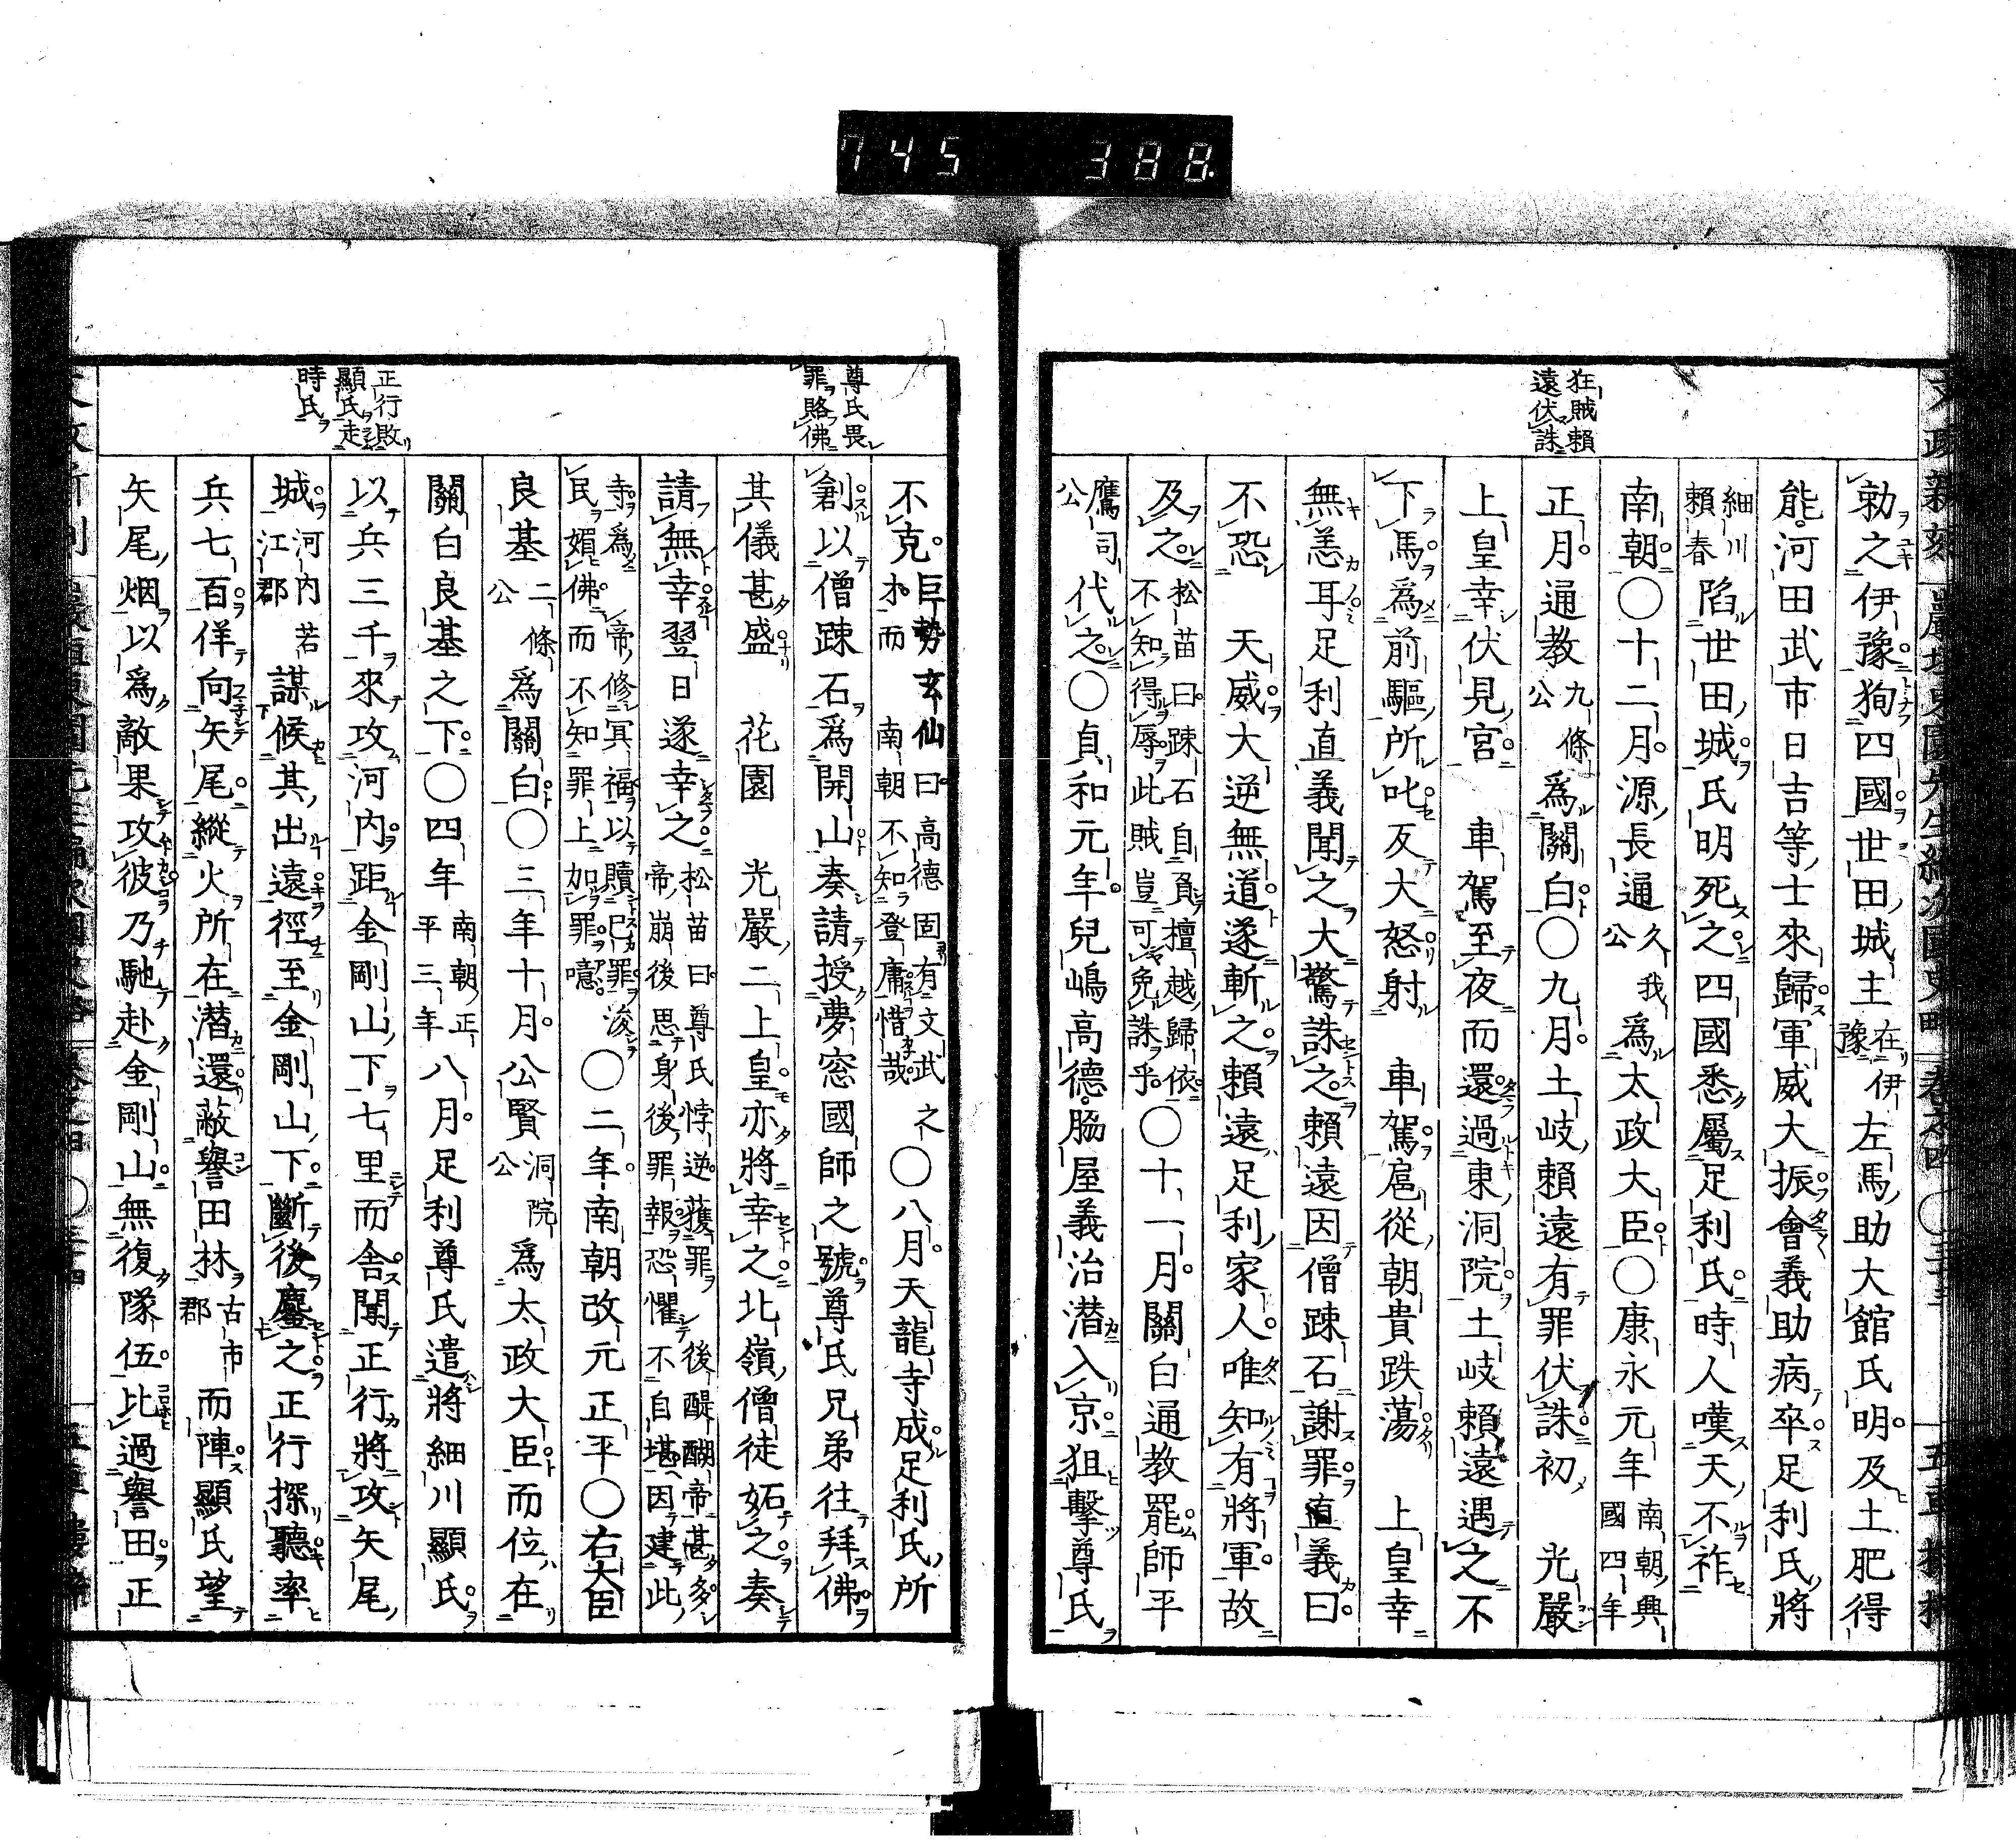 745 388
狂賊賴
遠伏誅
勅之伊豫狥四國世田城主在伊豫左馬助大館氏明及土肥得
能河田武市日吉等士來歸軍威大振會義助病卒足利氏將
細川賴春陷世田城氏明死之四國悉屬足利氏時人嘆天不祚
南朝〇十二月源長通久我公爲太政大臣〇康永元年南朝興國四年
正月通教九條公爲關白〇九月土岐賴遠有罪伏誅初 光嚴
上皇幸伏見宮 車駕至夜而還過東洞院土岐賴遠遇之不
下馬爲前驅所叱反大怒射 車駕扈從朝貴跌蕩 上皇幸
無恙耳足利直義聞之大驚誅之賴遠因僧踈石謝罪直義曰
不恐 天威大逆無道遂斬之賴遠足利家人唯知有將軍故
及之松苗曰踈石自負擅越歸依不知得辱此賊豈可免誅乎〇十一月關白通教罷師平
鷹司公代之〇貞和元年兒嶋高德脇屋義治潜入京狙擊尊氏
尊氏畏
罪賂佛
不克巨勢玄仙曰高德固有文武才而南朝不知登庸惜哉之〇八月天龍寺成足利氏所
創以僧踈石爲開山奏請授夢窓國師之號尊氏兄弟往拜佛
其儀甚盛 花園 光嚴二上皇亦將幸之北嶺僧徒妬之奏
請無幸翌日遂幸之松苗曰尊氏悖逆獲罪後醍醐帝甚多帝崩後思身後罪報恐懼不自堪因建此
寺爲帝修冥福以贖巳罪浚民媚佛而不知罪上加罪噫〇二年南朝改元正平〇右大臣
良基二條公爲關白〇三年十月公賢洞院公爲太政大臣而位在
關白良基之下〇四年南朝正平三年八月足利尊氏遣將細川顯氏
以兵三千來攻河內距金剛山下七里而舍聞正行將攻矢尾
城河內若江郡謀候其出遠徑至金剛山下斷後鏖之正行探聽率
兵七百佯向矢尾縱火所在潜還蔽譽田林古市郡而陣顯氏望
矢尾烟以爲敵果攻彼乃馳赴金剛山無復隊伍比過譽田正
正行敗
顯氏走
時氏